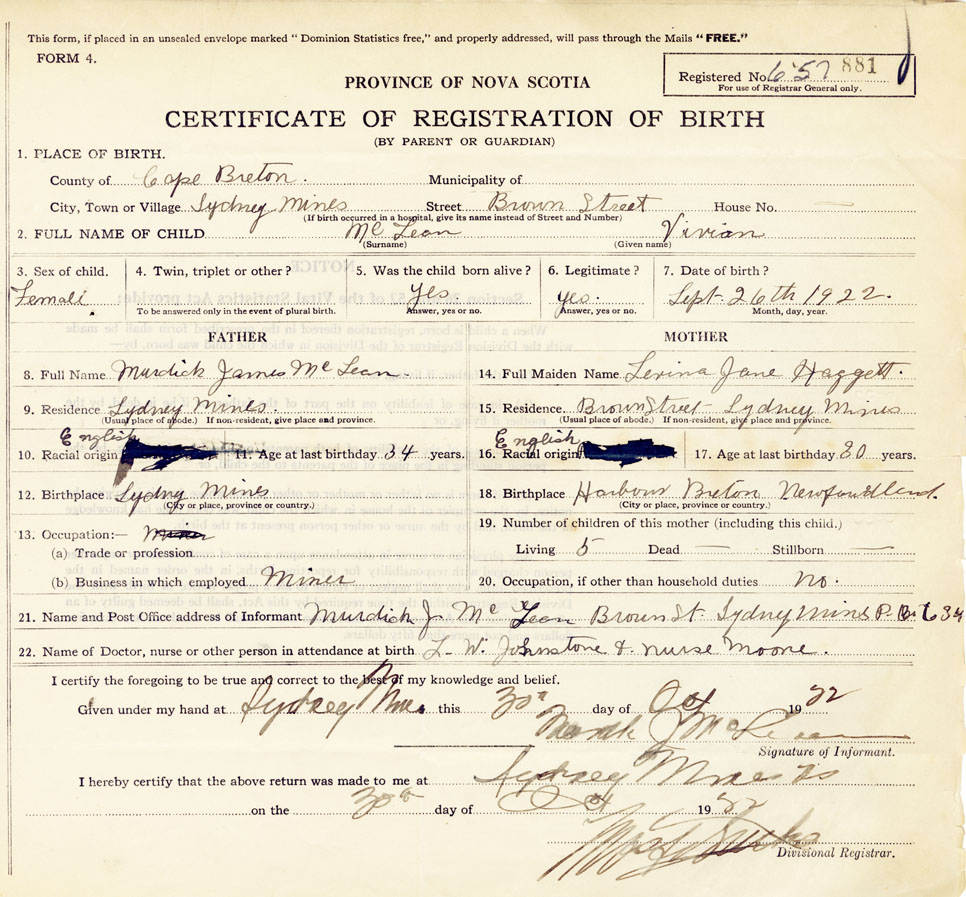 This form, if placed in an unsealed envelope marked " Dominion Statistics free," and properly addressed, will pass through the Mails "FREE."
FORM 4.
Registered No. 657 881
For use of Registrar General only.
PROVINCE OF NOVA SCOTIA
CERTIFICATE OF REGISTRATION OF BIRTH
(BY PARENT OR GUARDIAN)
1. PLACE OF BIRTH.
County of Cape Breton. Municipality of
City, Town or Village Sydney Mines Street Brown Street House No. —
(If birth occurred in a hospital, give its name instead of Street and Number)
2. FULL NAME OF CHILD Mc Lean Vivian
(Surname) (Given name)
3. Sex of child. 4. Twin, triplet or other? 5. Was the child born alive? 6. Legitimate? 7. Date of birth?
Female yes yes. Sept. 26th 1922.
To be answered only in the event of plural birth. Answer, yes or no. Answer, yes or no. Month, day, year.
FATHER MOTHER
8. Full Name Murdick James Mc Lean. 14. Full Maiden Name Levina Jane Haggett.
9. Residence Sydney Mines. 15. Residence Brown Street Sydney Mines
(Usual place of abode.) If non-resident, give place and province. (Usual place of abode.) If non-resident, give place and province.
English English
10. Racial origin 11. Age at last birthday 34 years. 16. Racial origin 17. Age at last birthday 30 years.
12. Birthplace Sydny Mines 18. Birthplace Harbour Breton Newfoundland.
(City or place, province or country.) (City or place, province or country.)
13. Occupation:— Miner 19. Number of children of this mother (including this child.)
(a) Trade or profession Living 5 Dead — Stillborn —
(b) Business in which employed Miner 20. Occupation, if other than household duties no.
21. Name and Post Office address of Informant Murdick J. Mc Lean Brown St. Sydney Mines
22. Name of Doctor, nurse or other person in attendance at birth L. W. Johnstone & nurse Moore.
I certify the foregoing to be true and correct to the best of my knowledge and belief.
Given under my hand at Sydney Mines this 30th day of Oct 1922
Signature of Informant.
I hereby certify that the above return was made to me at Sydney Mines
on the 30th day of Oct 1922
Divisional Registrar.